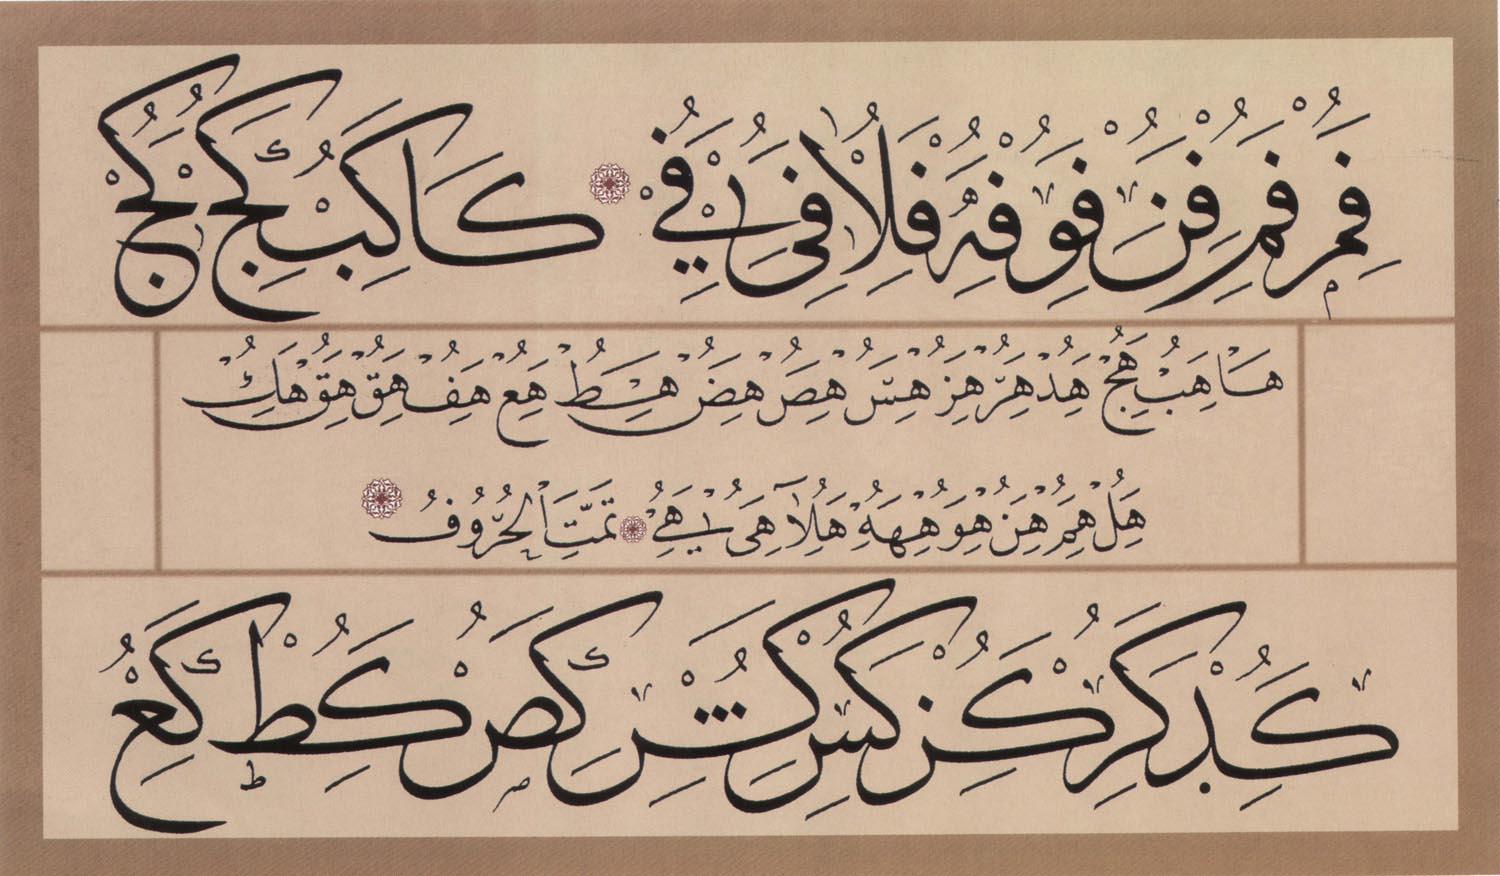 فم فم فن فو فه فلا فى في كا كب كج كج
ها هب هج هد هر هز هس هص هض هط هع هف هق هق هك
هل هم هن هو هه هلا هى هي تَمَّتِ الْحُرُوفُ
كد كر كز كس كش كص كط كع